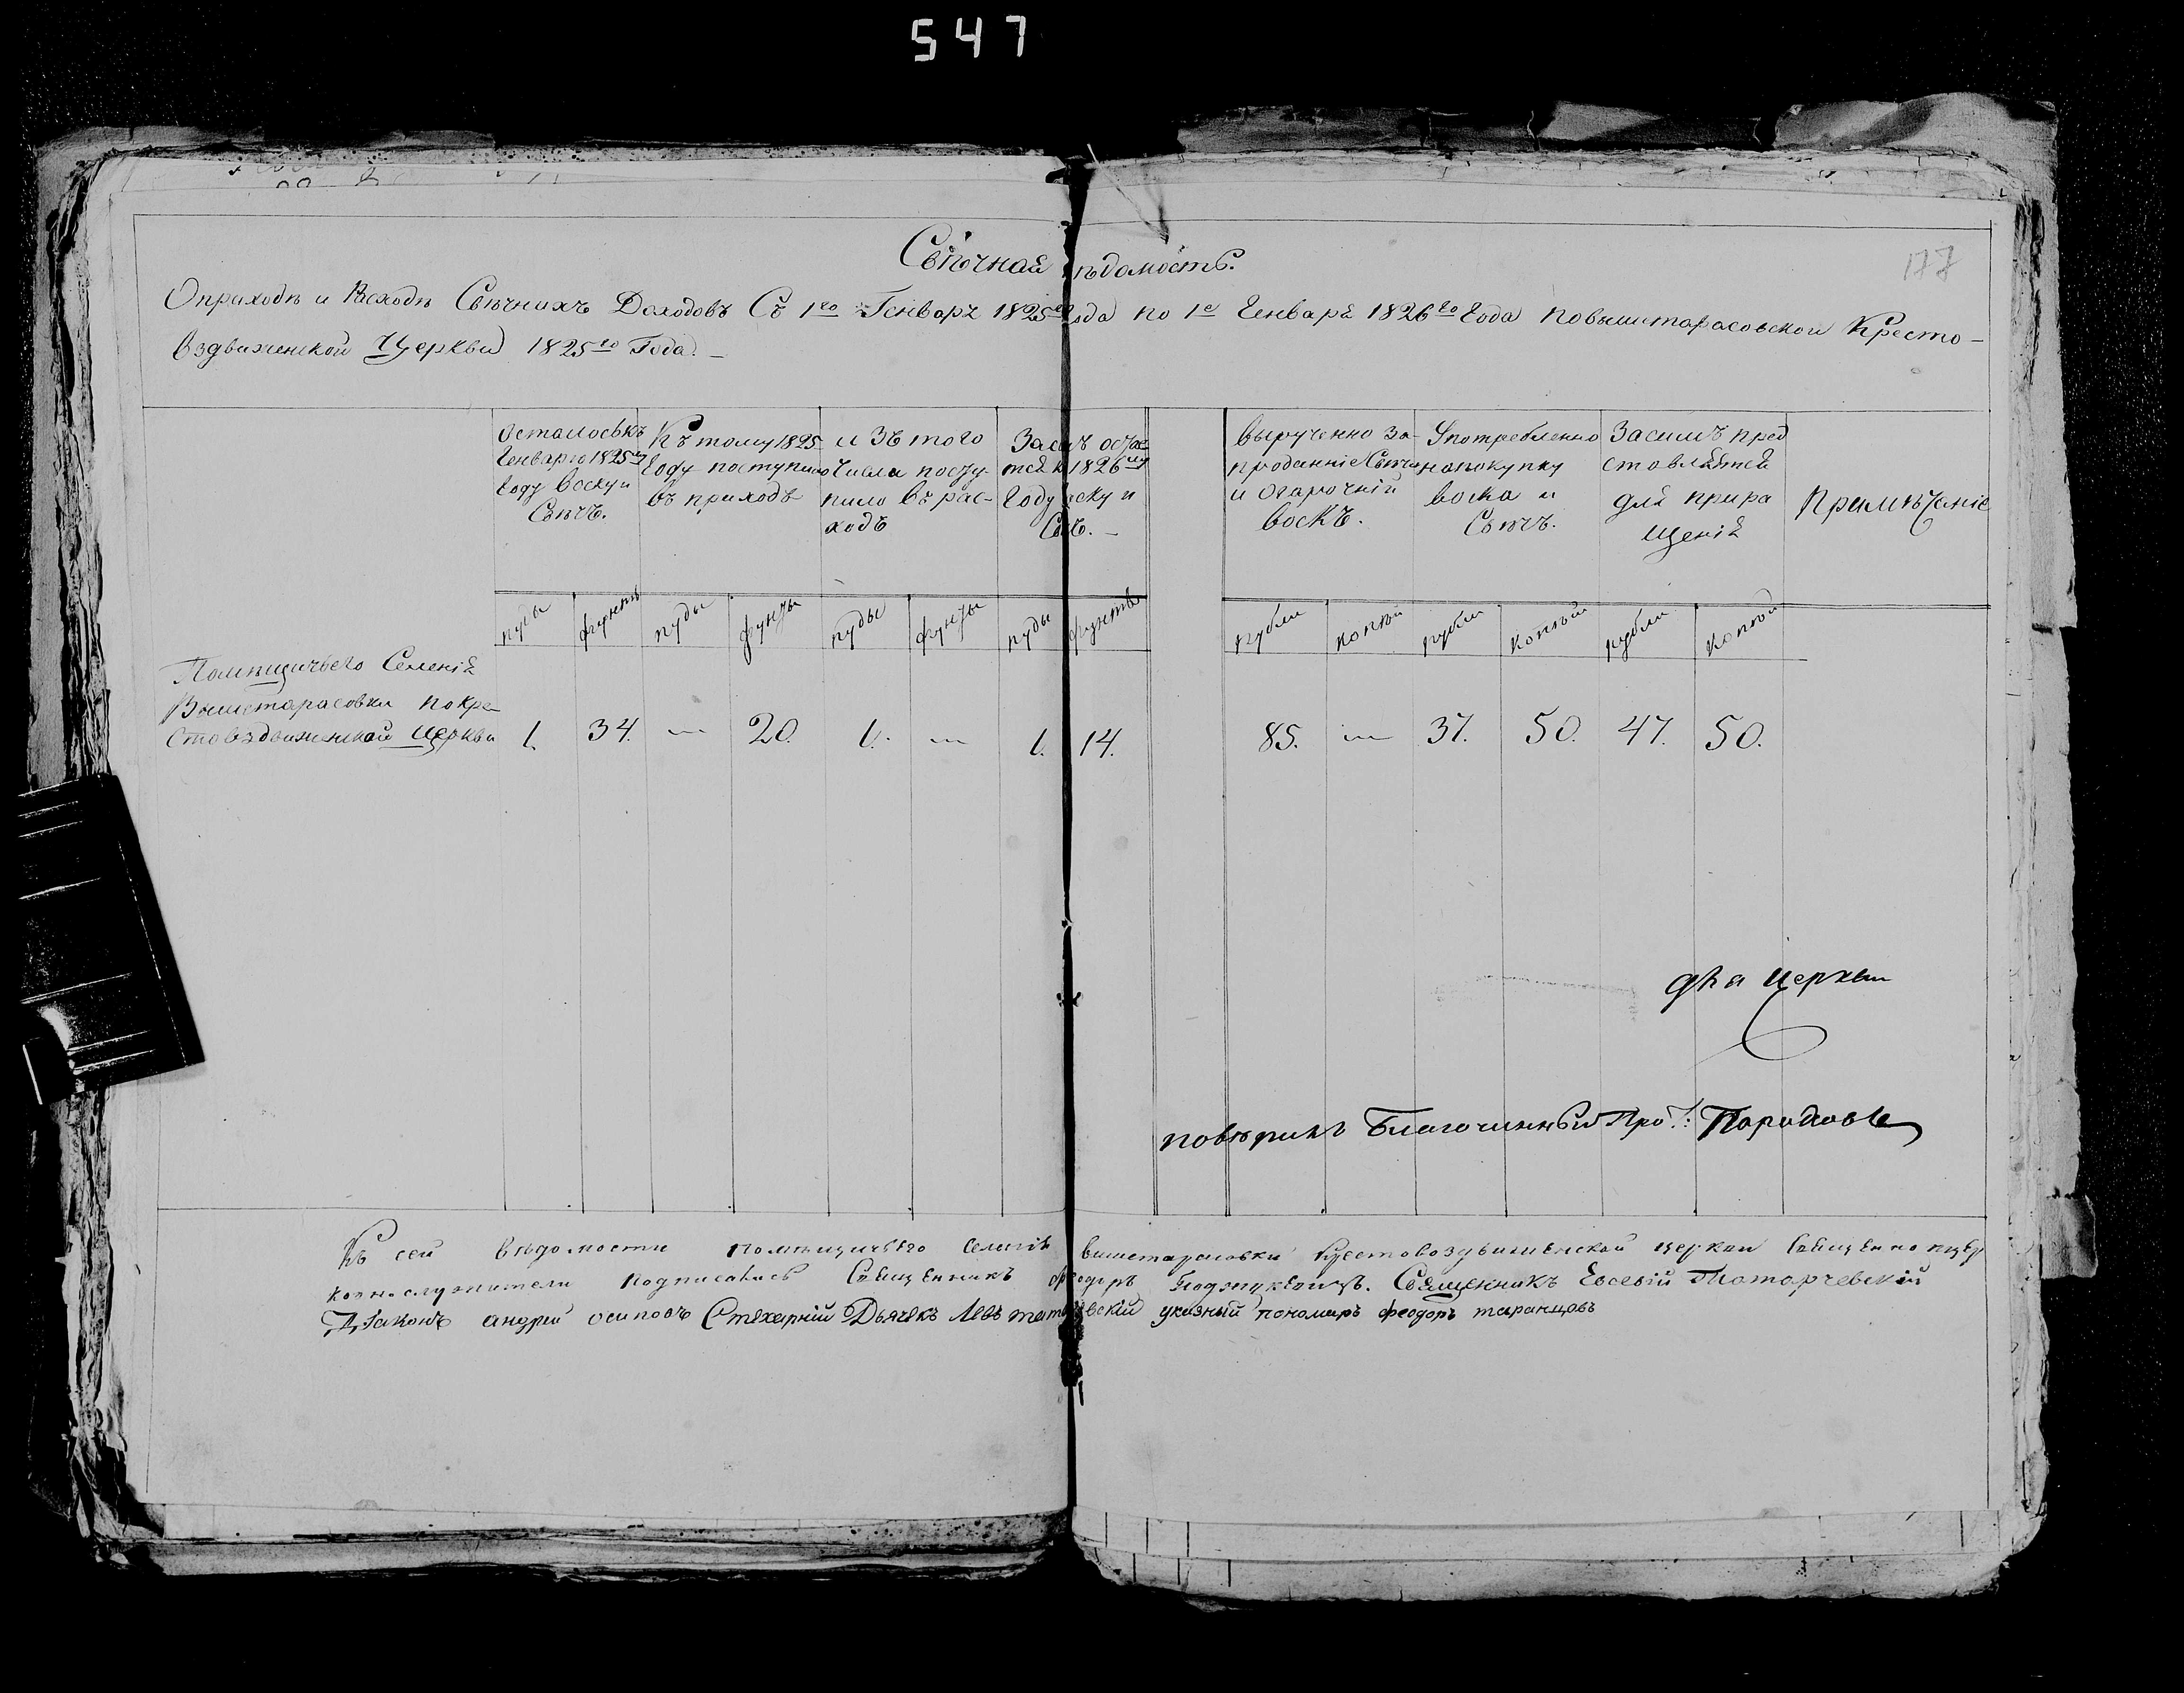 547
177
Свѣчная ѣдомость.
О приходѣ и Расходѣ Свѣчнихъ Доходовъ Съ 1го Генваря 1825го Года по 1е Генваря 1826го Года по вышетарасовской Кресто-
вздвиженской Церкви 1825го Года. —
Осталось къ Генварю 1825му Году воску и Свѣчъ.
Къ тому 1825 Году поступило въ приходъ
и зъ того Числа посту- пило въ рас- ходъ
Засимъ остае тся к 1826му Году воску и Свѣ.ъ. —
вырученно за проданніе Свѣчи и Огарочній воскъ.
Употребленно на покупку воска и Свѣчъ.
Засимъ пред ставляется для прира щенія
Примѣчаніе
пуды фунты пуды фунты пуды фунты пуды фунты рубли копѣй рубли копѣй рубли копѣй
Помѣщичьего Селенія
Вышетарасовки по Кре
стовздвиженской Церкви 1. 34. — 20. 1. — 1. 14. 85. — 37. 50. 47. 50.
два церкви
повѣрилъ Благочинный Про:
Къ сей вѣдомости помѣщичьего селенія вишетарасовки Крестовоздвиженской церкви Священно и цер
ковно служители подписались Священникъ феодоръ Священникъ Евсевій Татарчевскій
Діаконъ андрей осиповъ Стихарній Дьячекъ Левъ указный пономаръ феодоръ таранцовъ